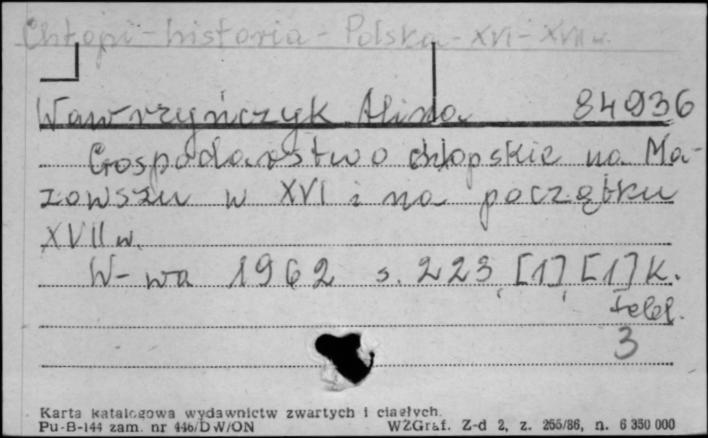 Chłopi - historia - Polska - XVI - XVII w.
Wawrzyńczyk Alina 84936
Gospodarstwo chłopskie na Ma-
zowszu w XVI i na początku
XVII w.
W-wa 1962 s. 223, [1], [1] k.
tabl.
3
Karta katalogowa wydawnictw zwartych i ciągłych.
Pu-B-144 zam. nr 446/DW/ON WZGraf. Z-d 2, z. 265/86, n. 6 350 000